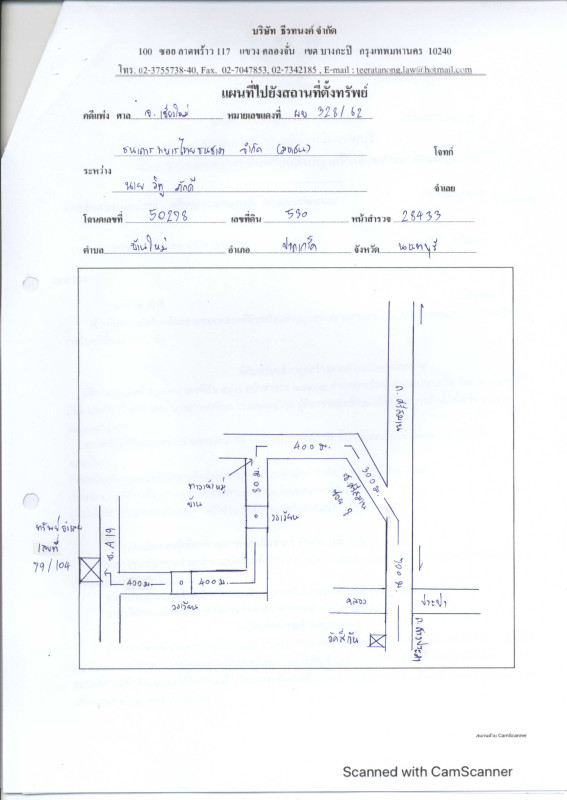 บริษัท ธีรทนงค์ จำกัด
100 ซอย ลาดพร้าว 117 แขวง คลองจั่น เขต บางกะปิ กรุงเทพมหานคร 10240
โทร. 02-3755738-40, Fax. 02-7047853, 02-7342185 , E-mail : teeratanong.law@hotmail.com
แผนที่ไปยังสถานที่ตั้งทรัพย์
คดีแพ่ง ศาล จ. เชียงใหม่ หมายเลขแดงที่ ผบ 328/62
ธนาคาร ทหารไทยธนชาต จำกัด (มหาชน) โจทก์
ระหว่าง
นาย วิทู ภักดี จำเลย
โฉนดเลขที่ 50298 เลขที่ดิน 530 หน้าสำรวจ 28433
ตำบล บ้านใหม่ อำเภอ ปากเกร็ด จังหวัด นนทบุรี
ถ. ศรีสมาน
400 ม.
300 ม.
ทางเข้าหมู่
บ้าน
80 ม.
ซ. ศรีสมาน
ซอย 9
วงเวียน
ทรัพย์จำนอง
เลขที่
79/104
ซ. A19
400 ม.
400 ม.
วงเวียน
700 ม.
คลอง
ประปา
วัด